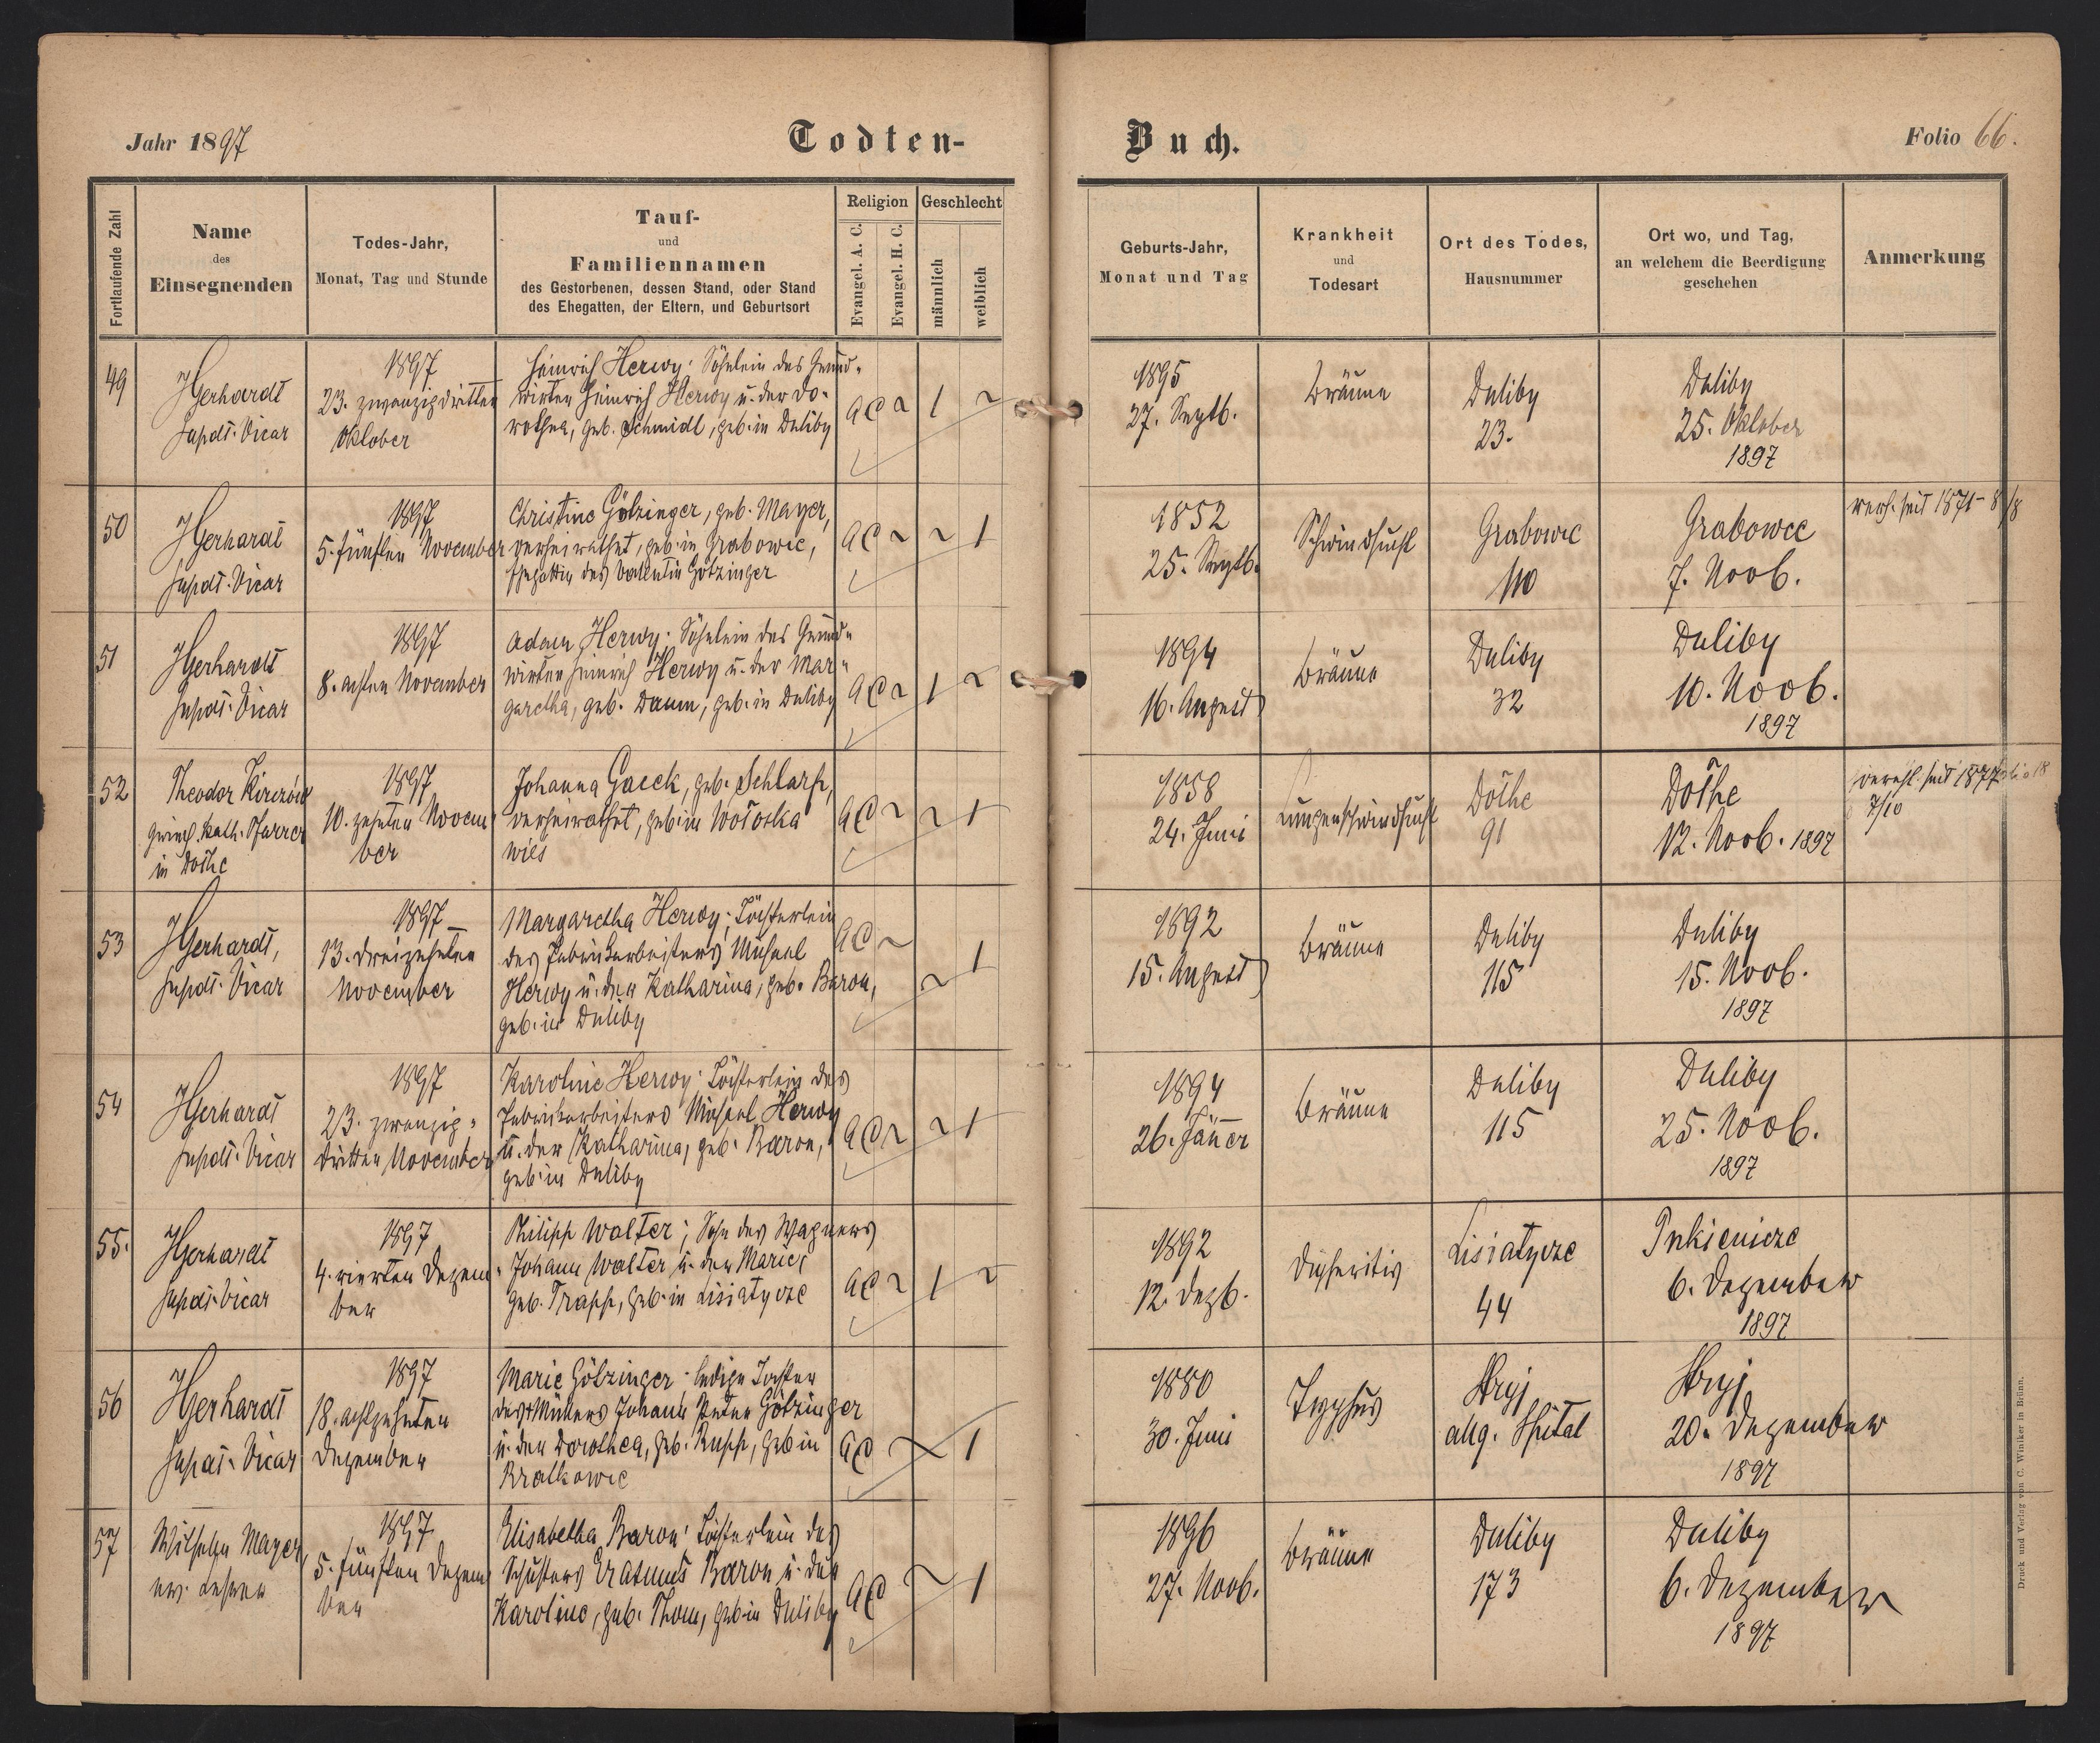 Jahr 1897
Todten-
Buch.
Folio 66.
Fortlaufende Zahl
Name
des
Einsegnenden
Todes-Jahr,
Monat, Tag und Stunde
Tauf-
und
Familiennamen
des Gestorbenen, dessen Stand, oder Stand
des Ehegatten, der Eltern, und Geburtsort
Religion
Evangel. A. C.
Evangel. H. C.
Geschlecht
männlich
weiblich
Geburts-Jahr,
Monat und Tag
Krankheit
und
Todesart
Ort des Todes,
Hausnummer
Ort wo, und Tag,
an welchem die Beerdigung
geschehen
Anmerkung
49
HGerhardt
Supdt. Vicar
1897
23. zwanzigdritten
Oktober
Heinrich Herwy: Söhnlein des Grund-
wirten Heinrich Herwy u. der Do-
rothea, geb. Schmidt, geb. in Duliby
AC ~ 1 ~
1895
27. Septb.
Bräune
Duliby
23.
Duliby
25. Oktober
1897
50
HGerhardt
Supdt. Vicar
1897
5. fünften November
Christine Götzinger, geb. Mayer,
verheirathet, geb. in Grabowce,
Ehegattin des Valentin Götzinger
AC ~ ~ 1
1852
25. Septb.
Schwindsucht
Grabowce
110
Grabowce
7. Novb.
verh. seit 1871- 8/8
51
HGerhardt
Supdt. Vicar
1897
8. achten November
Adam Herwy: Söhnlein des Grund-
wirten Heinrich Herwy u. der Mar-
garetha, geb. Daum, geb. in Duliby
AC ~ 1 ~
1894
16. August
Bräune
Duliby
32
Duliby
10. Novb.
1897
52
Theodor
griech. kath. Pfarrer
in Dołhe
1897
10. zehnten Novem-
ber
Johanna Gaeck, geb. Schlarp,
verheirathet, geb. in Wołoska
wieś
AC ~ ~ 1
1858
24. Juni
Lungenschwindsucht
Dołhe
91
Dołhe
12. Novb. 1897
verehl. seit 1877
7/10
53
HGerhardt,
Supdt. Vicar
1897
13. dreizehnten
November
Margaretha Herwy; Töchterlein
des Fabriksarbeiters Michael
Herwy u. der Katharina, geb. Baron,
geb. in Duliby
AC ~ ~ 1
1892
15. August
Bräune
Duliby
115
Duliby
15. Novb.
1897
54
HGerhardt
Supdt. Vicar
1897
23. zwanzig-
dritten November
Karoline Herwy; Töchterlein des
Fabriksarbeiters Michael Herwy
u. der Katharina, geb. Baron,
geb. in Duliby
AC ~ ~ 1
1894
26. Jäner
Bräune
Duliby
115
Duliby
25. Novb.
1897
55.
HGerhardt
Supdt. Vicar
1897
4. vierten Dezem-
ber
Philipp Walter; Sohn des Wagners
Johann Walter u. der Marie,
geb. Trapp, geb. in Lisiatycze
AC ~ 1 ~
1892
12. Dezb.
Diphteritis
Lisiatycze
44
Pukienicze
6. Dezember
1897
56
HGerhardt
Supdt. Vicar
1897
18. achtzehnten
Dezember
Marie Götzinger: ledige Tochter
des † Müllers Johann Peter Götzinger
u. der Dorothea, geb. Rupp, geb. in
Bratkowce
AC ~ 1
1880
30. Juni
Typhus
Stryj
allg. Spital
Stryj
20. Dezember
1897
57
Wilhelm Mayer,
ev. Lehrer
1897
5. fünften Dezem-
ber
Elisabetha Baron; Töchterlein des
Schusters Erasmus Baron u. der
Karoline, geb. Thom, geb. in Duliby
AC ~ 1
1896
27. Novb.
Bräune
Duliby
173
Duliby
6. Dezember
1897
Druck und Verlag von C. Winiker in Brünn.